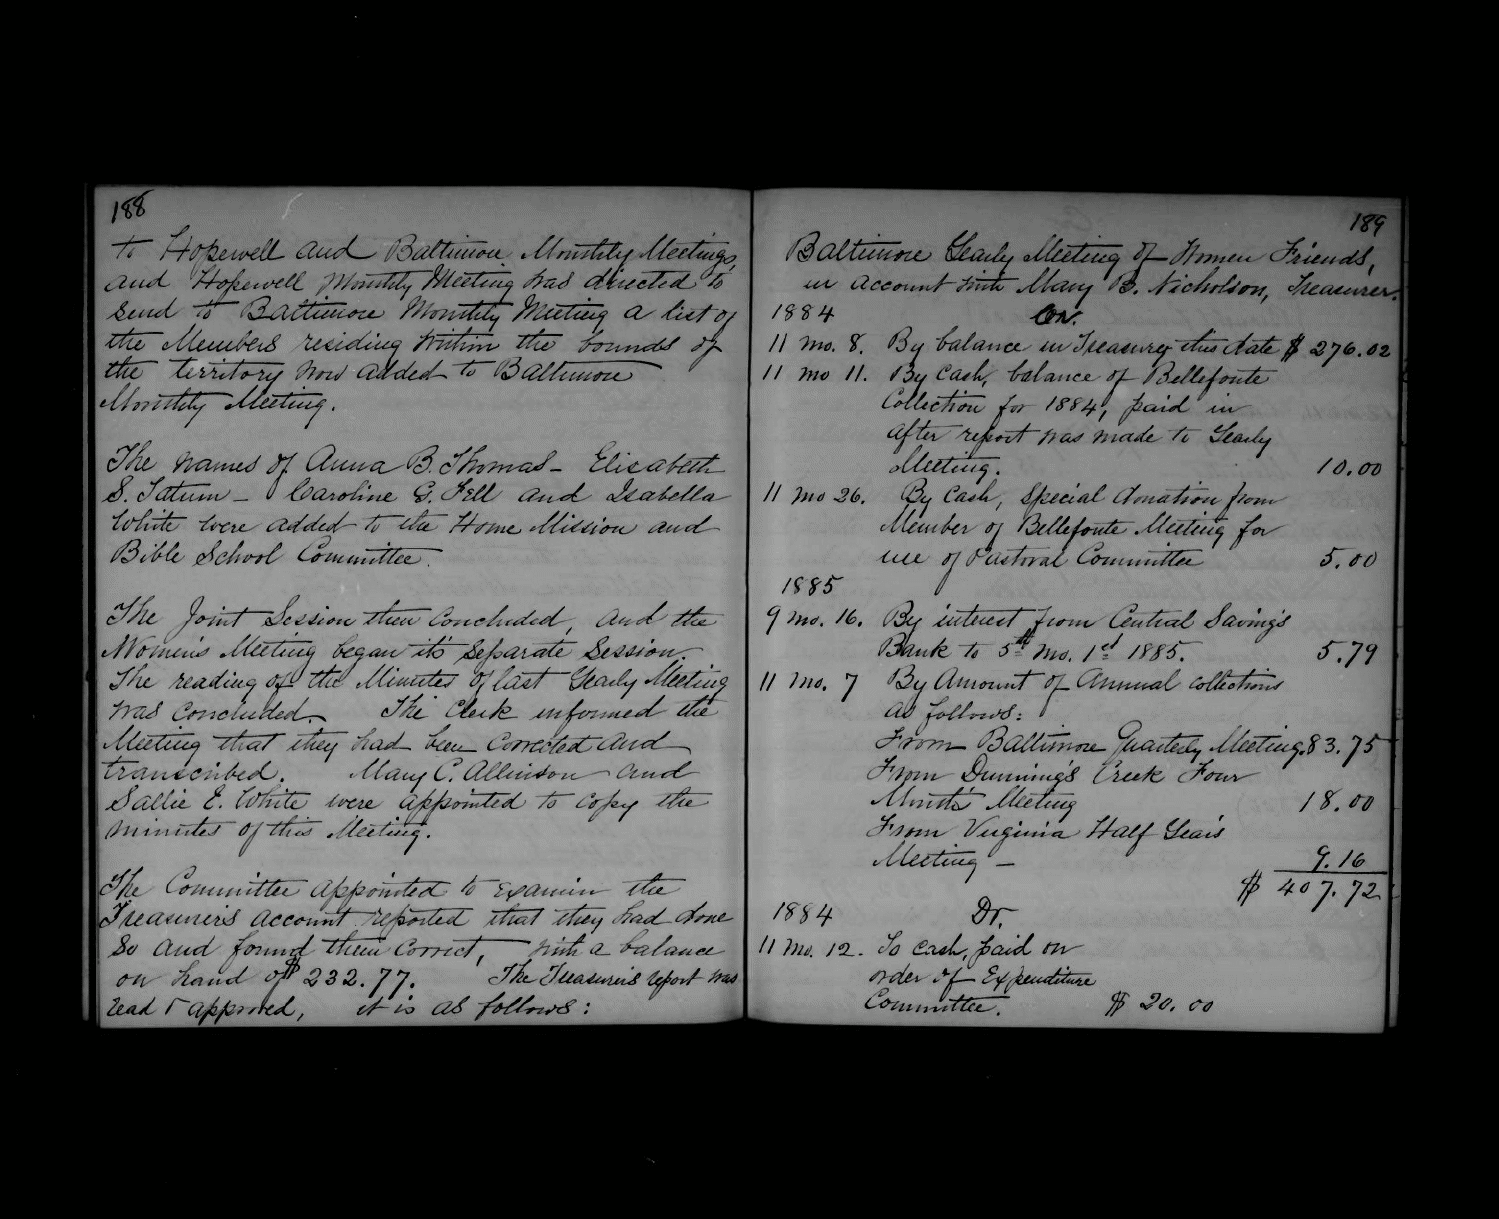 188
to Hopewell and Baltimore Monthly Meetings,
and Hopewell Monthly Meeting was directed to
send to Baltimore Monthly Meeting a list of
the Members residing within the bounds of
the territory now added to Baltimore
Monthly Meeting.
The names of Anna B. Thomas - Elizabeth
S. Tatum - Caroline G. Fell and Isabella
White were added to the Home Mission and
Bible School Committee.
The Joint Session then concluded, and the
Women's Meeting began it's separate session.
The reading of the Minutes of last Yearly Meeting
was concluded. The Clerk informed the
Meeting that they had been corrected and
transcribed. Mary C. Allinson and
Sallie E. White were appointed to copy the
minutes of this Meeting.
The Committee appointed to examin the
Treasurer's account reported that they had done
so and found them correct, with a balance
on hand of $232.77. The Treasurer's report was
read & approved, it is as follows:
189
Baltimore Yearly Meeting of Women Friends,
in account with Mary B. Nicholson, Treasurer.
1884 Cr.
11 mo. 8. By balance in Treasury this date $ 276.02
11 mo 11. By Cash, balance of Bellefonte
Collection for 1884, paid in
after report was made to Yearly
Meeting. 10.00
11 mo 26. By Cash, special donation from
Member of Bellefonte Meeting for
use of Pastoral Committee 5.00
1885
9 mo. 16. By interest from Central Saving's
Bank to 5th mo. 1st 1885. 5.79
11 mo. 7 By Amount of Annual collections
as follows:
From Baltimore Quarterly Meeting. 83.75
From Dunning's Creek Four
Month's Meeting 18.00
From Virginia Half Year's
Meeting - 9.16
$ 407.72
1884 Dr.
11 mo. 12. To cash, paid on
order of Expenditure
Committee. $ 20.00